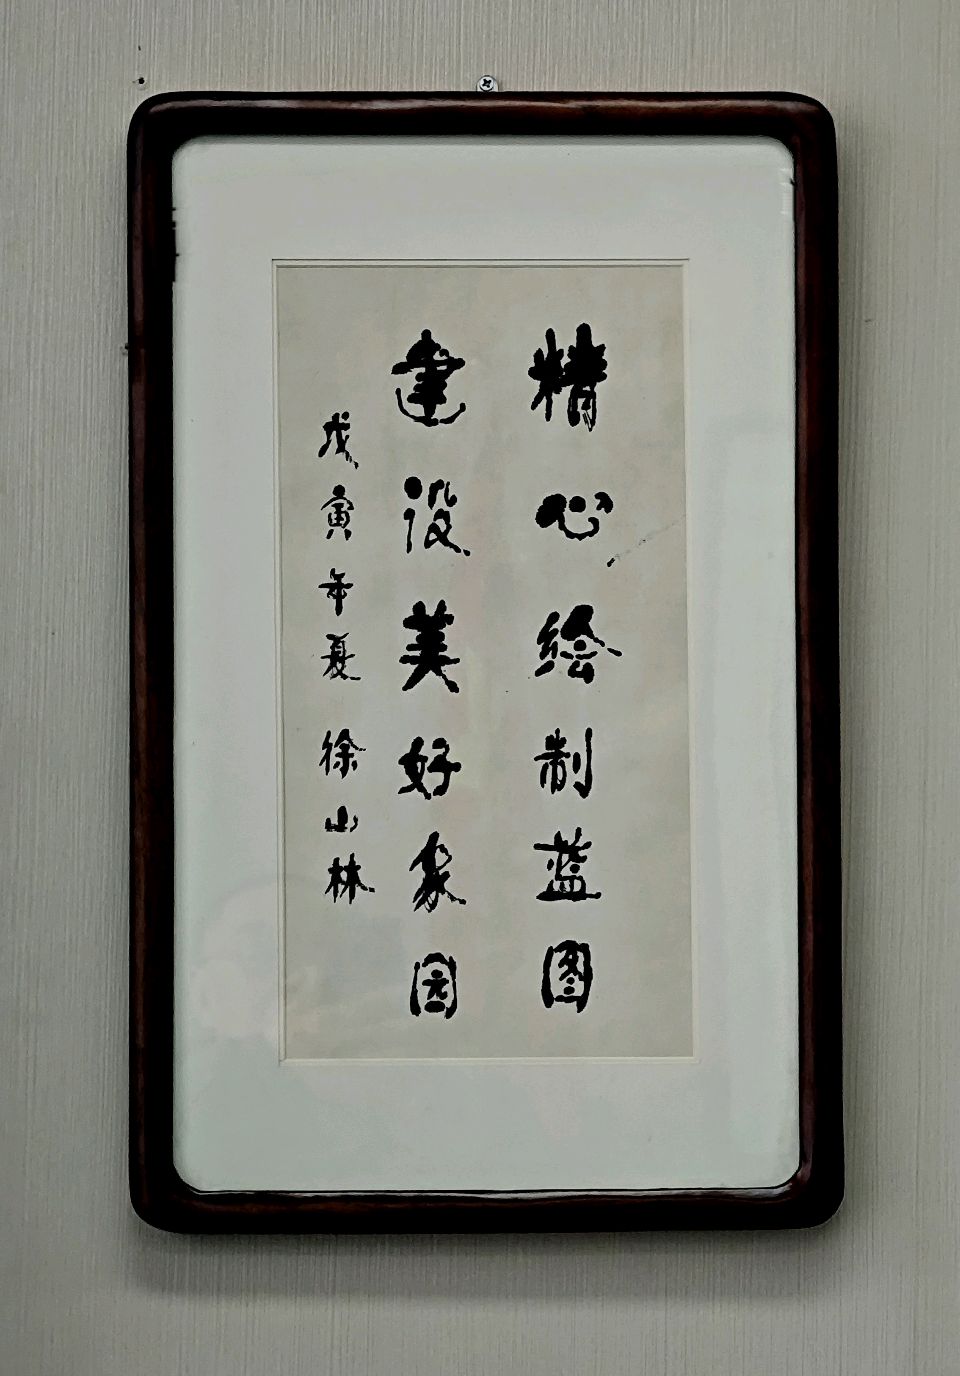 精心绘制蓝图
建设美好家园
戊寅年夏 徐山林